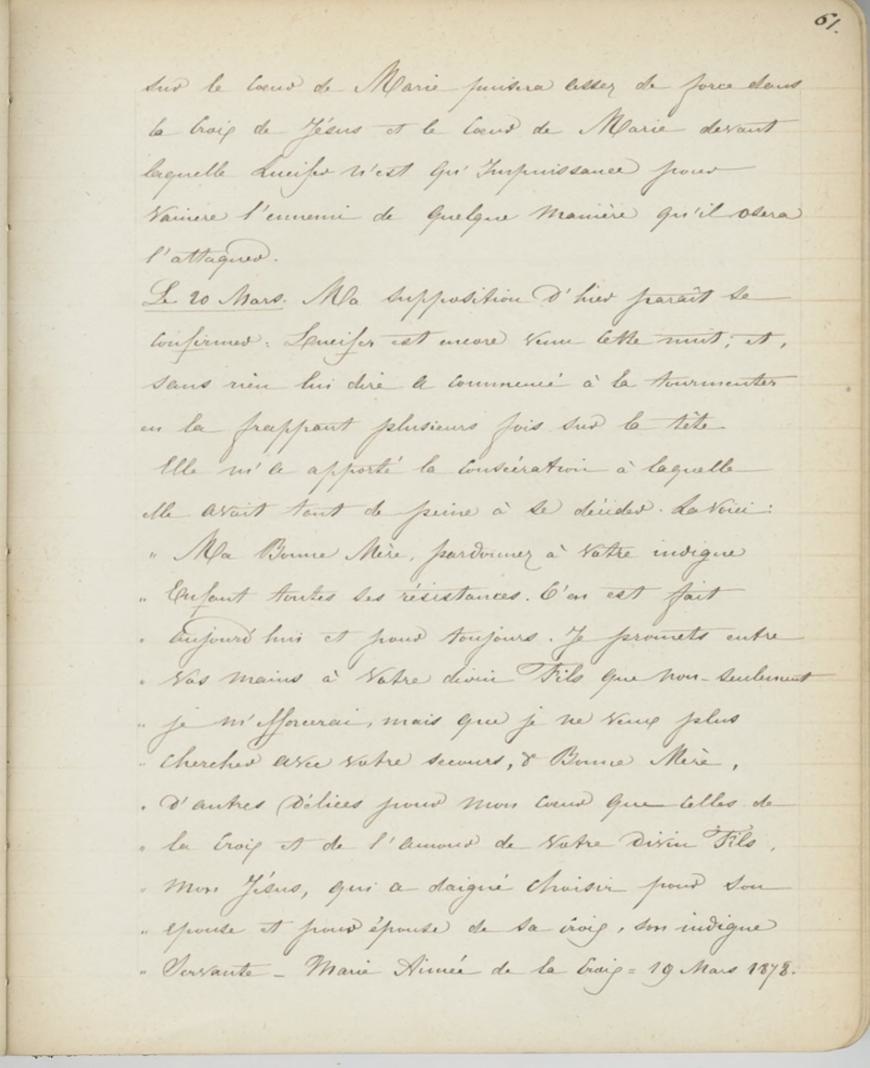 61.
sur le Cœur de Marie puisera assez de force dans
la Croix de Jésus et le Cœur de Marie devant
laquelle Lucifer n'est qu'Impuissance pour
Vaincre l'ennemi de quelque manière qu'il osera
l'attaquer.
Le 20 Mars. Ma supposition d'hier paraît se
confirmer : Lucifer est encore venu cette nuit; et,
sans rien lui dire a commencé à la tourmenter
en la frappant plusieurs fois sur la tête
Elle m'a apporté la Consécration à laquelle
elle avait tant de peine à se décider. La voici :
" Ma Bonne Mère, pardonnez à votre indigne
" Enfant toutes ses résistances. C'en est fait
" aujourd'hui et pour toujours. Je promets entre
" Vos mains à Votre divin Fils que non-seulement
" je m'efforcerai, mais que je ne veux plus
" chercher avec votre secours, ô Bonne Mère,
" D'autres Délices pour mon cœur que celles de
" la Croix et de l'amour de Votre Divin Fils,
" mon Jésus, qui a daigné choisir pour son
" épouse et pour épouse de sa croix, son indigne
" Servante _ Marie Aimée de la Croix = 19 Mars 1878.